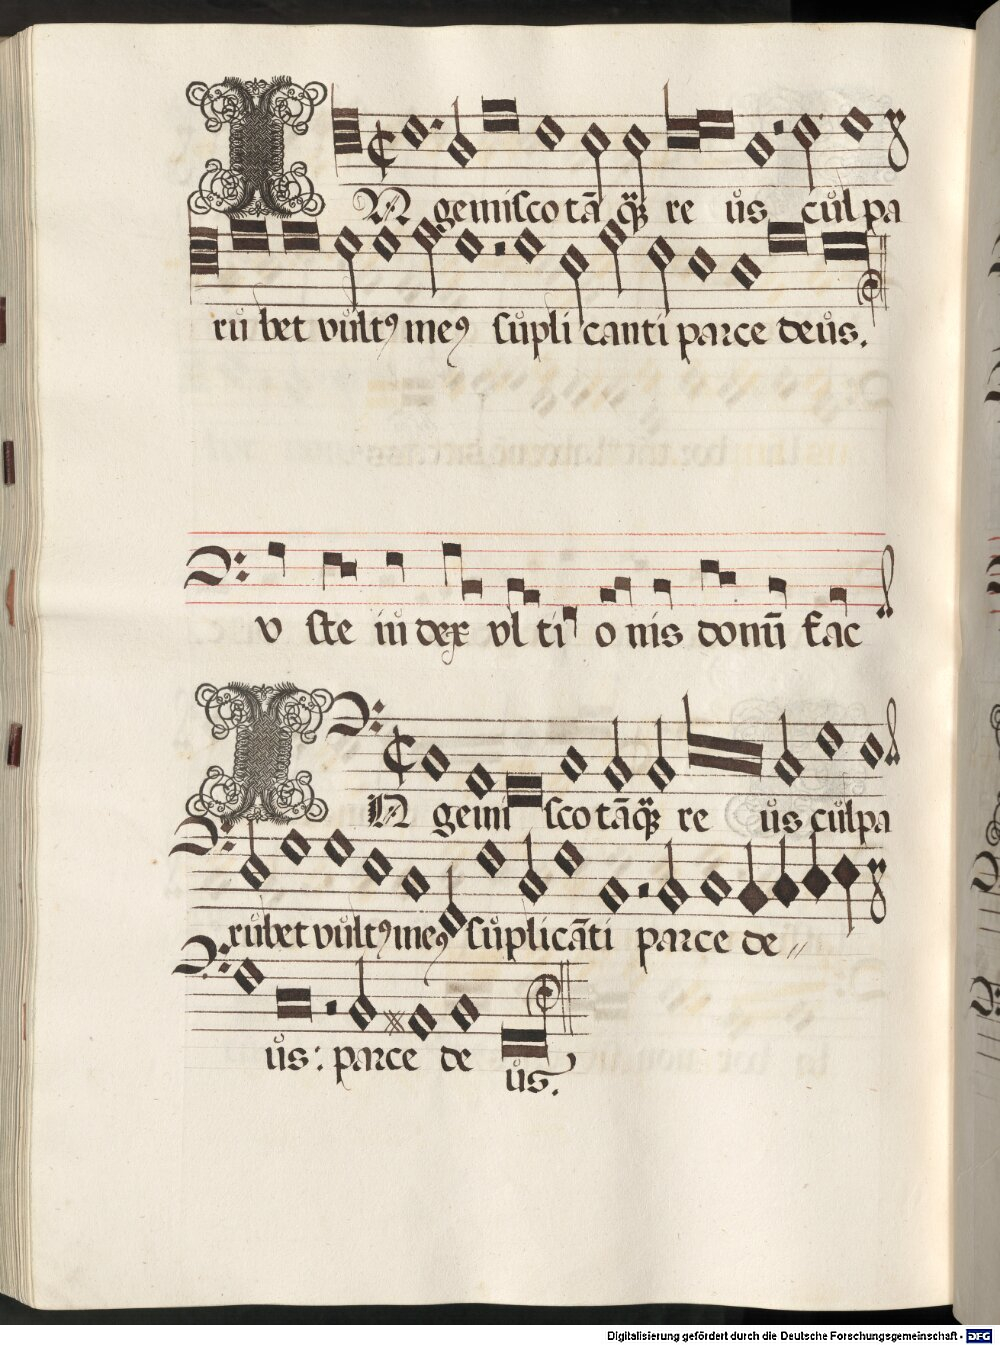 IN gemisco tā q̄ȝ re us culpa
rubet vultꝰ meꝰ supli canti parce deus.
v ste iudex vl ti o nis donū fac
IN gemi sco tāq̄ȝ re us culpa
rubet vultꝰ meꝰ suplicāti parce de
us: parce de us.
Digitalisierung gefördert durch die Deutsche Forschungsgemeinschaft - DFG